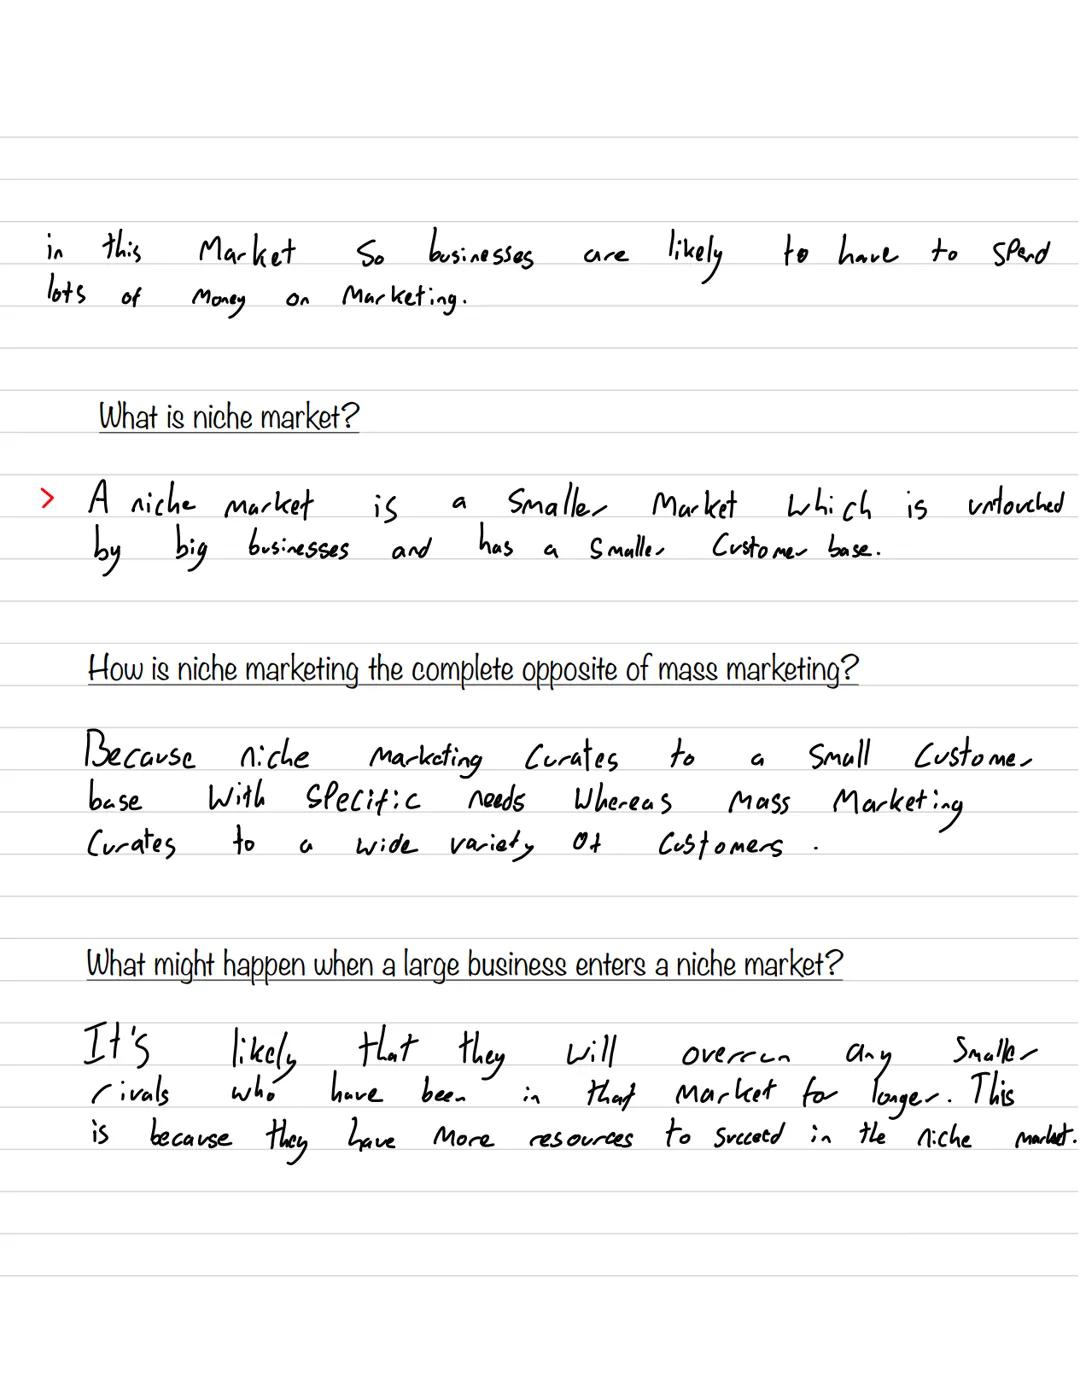 in this Market So businesses are likely to have to spend
lots of Money on Marketing.
What is niche market?
> A niche market is a Smaller Market which is untouched
by big businesses and has a smaller Customer base.
How is niche marketing the complete opposite of mass marketing?
Because niche marketing Curates to a small Customer
base with specific needs whereas mass Marketing
Curates to a wide variety of Customers.
What might happen when a large business enters a niche market?
It's likely that they will overrun any smaller
rivals who have been in that market for longer. This
is because they have more resources to succeed in the niche market.